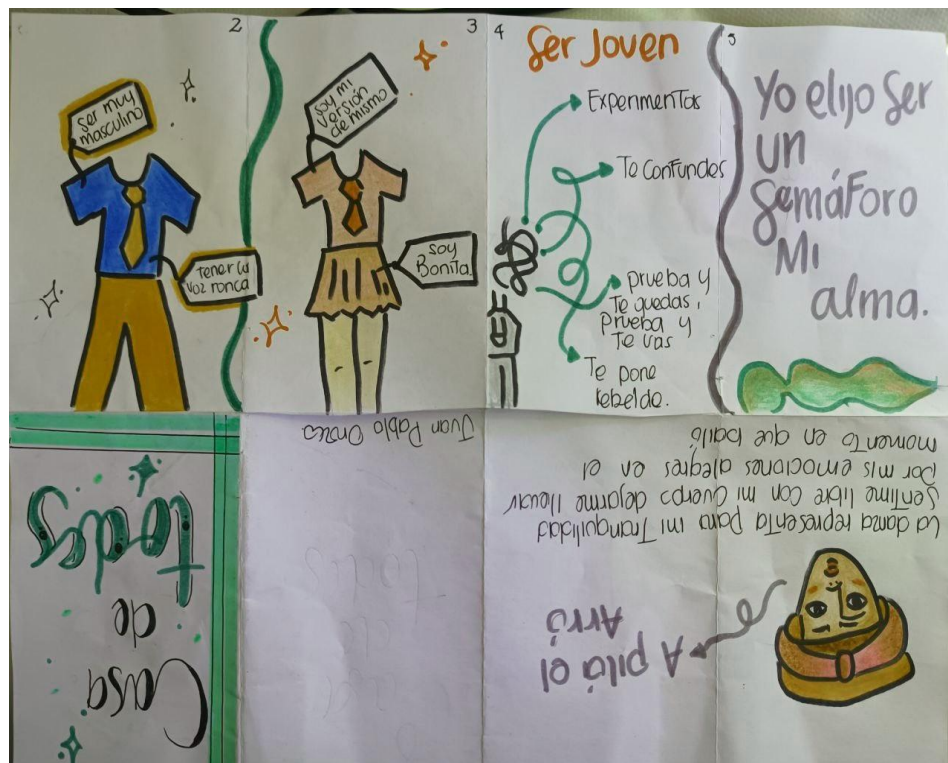 2
ser muy
masculino
Tener la
voz ronca
3
soy mi
versión
de mismo
soy
Bonita
4
Ser Joven
Experimentas
Te confundes
prueba y
Te quedas,
Prueba y
Te vas
Te pone
Rebelde.
5
Yo elijo ser
un
semáforo
Mi
alma.
Casa
de
todes
Juan Pablo
A pilá el
Arró
La danza representa para mi Tranquilidad
Sentirme libre con mi cuerpo dejarme llevar
por mis emociones alegres en el
momento en que bailó